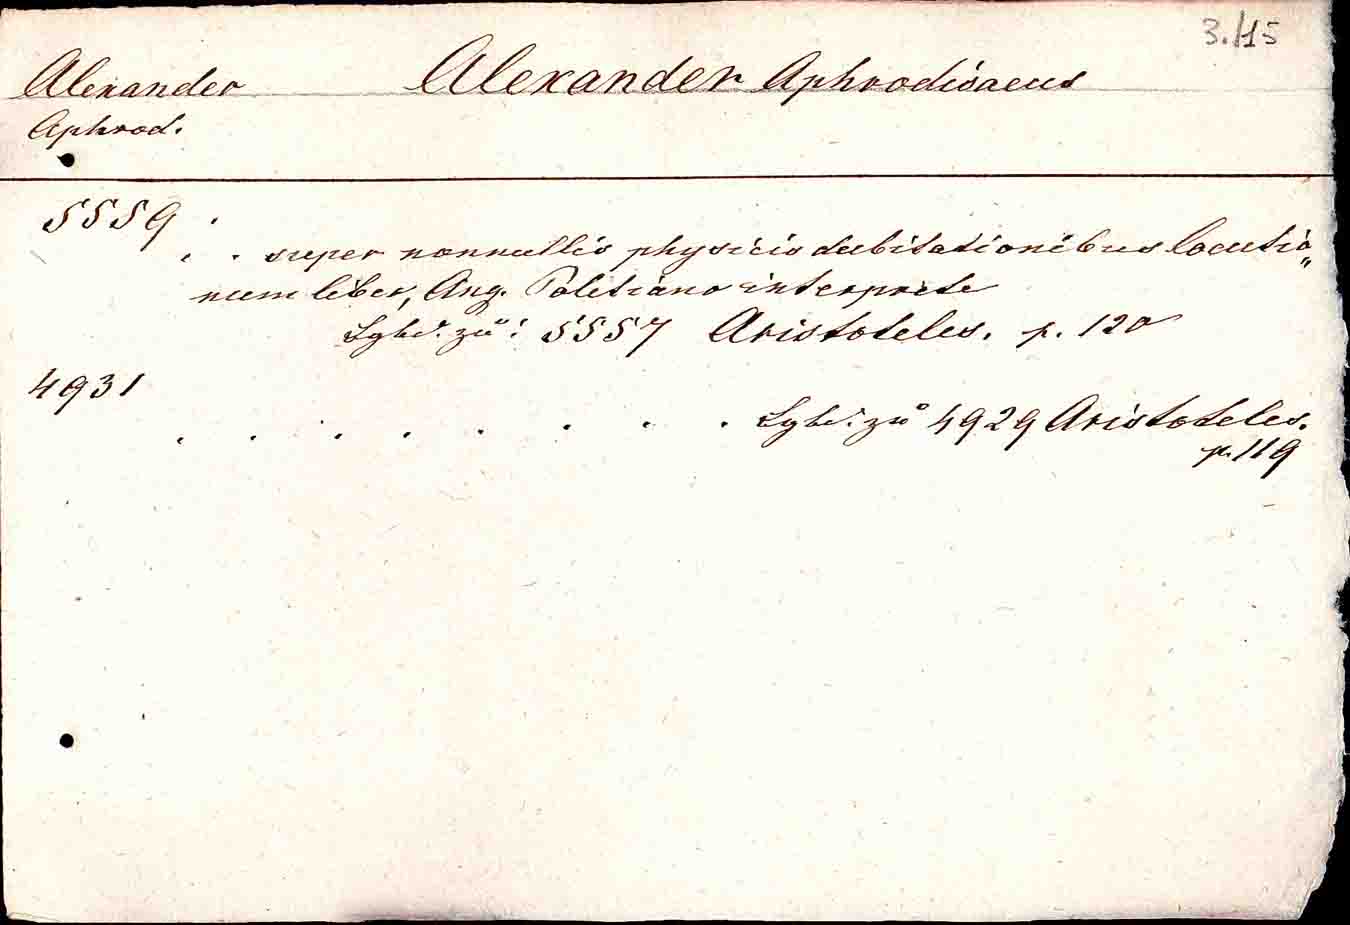 3./15
Alexander Alexander Aphrodisaeus
Aphrod.
5559 .
. . super nonnullis physicis dubitationibus locutio„
num liber, Ang. Politiano interprete
zu: 5557 Aristoteles. p. 120
4931
. . . . . . . . zu 4929 Aristoteles.
p. 119